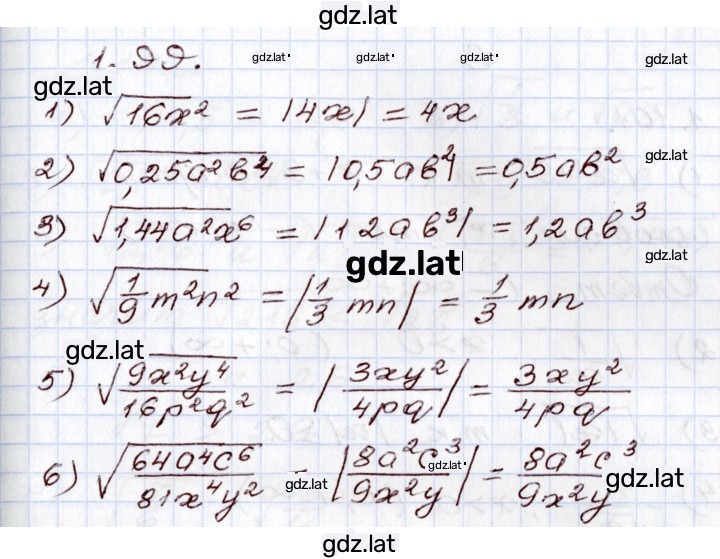 gdz.lat
1.99.
gdz.lat gdz.lat gdz.lat gdz.lat
gdz.lat
1) √16x² = |4x| = 4x
2) √0,25a²b⁴ = |0,5ab²| = 0,5ab²
gdz.lat
3) √1,44a²x⁶ = |1 2ab³| = 1,2ab³
gdz.lat
gdz.lat
4) √1/9 m²n² = |1/3 mn| = 1/3 mn
gdz.lat
5) √9x²y⁴/16p²q² = |3xy²/4pq| = 3xy²/4pq
6) √64a⁴c⁶/81x⁴y² = |8a²c³/9x²y| = 8a²c³/9x²y
gdz.lat
gdz.lat
gdz.lat
gdz.lat